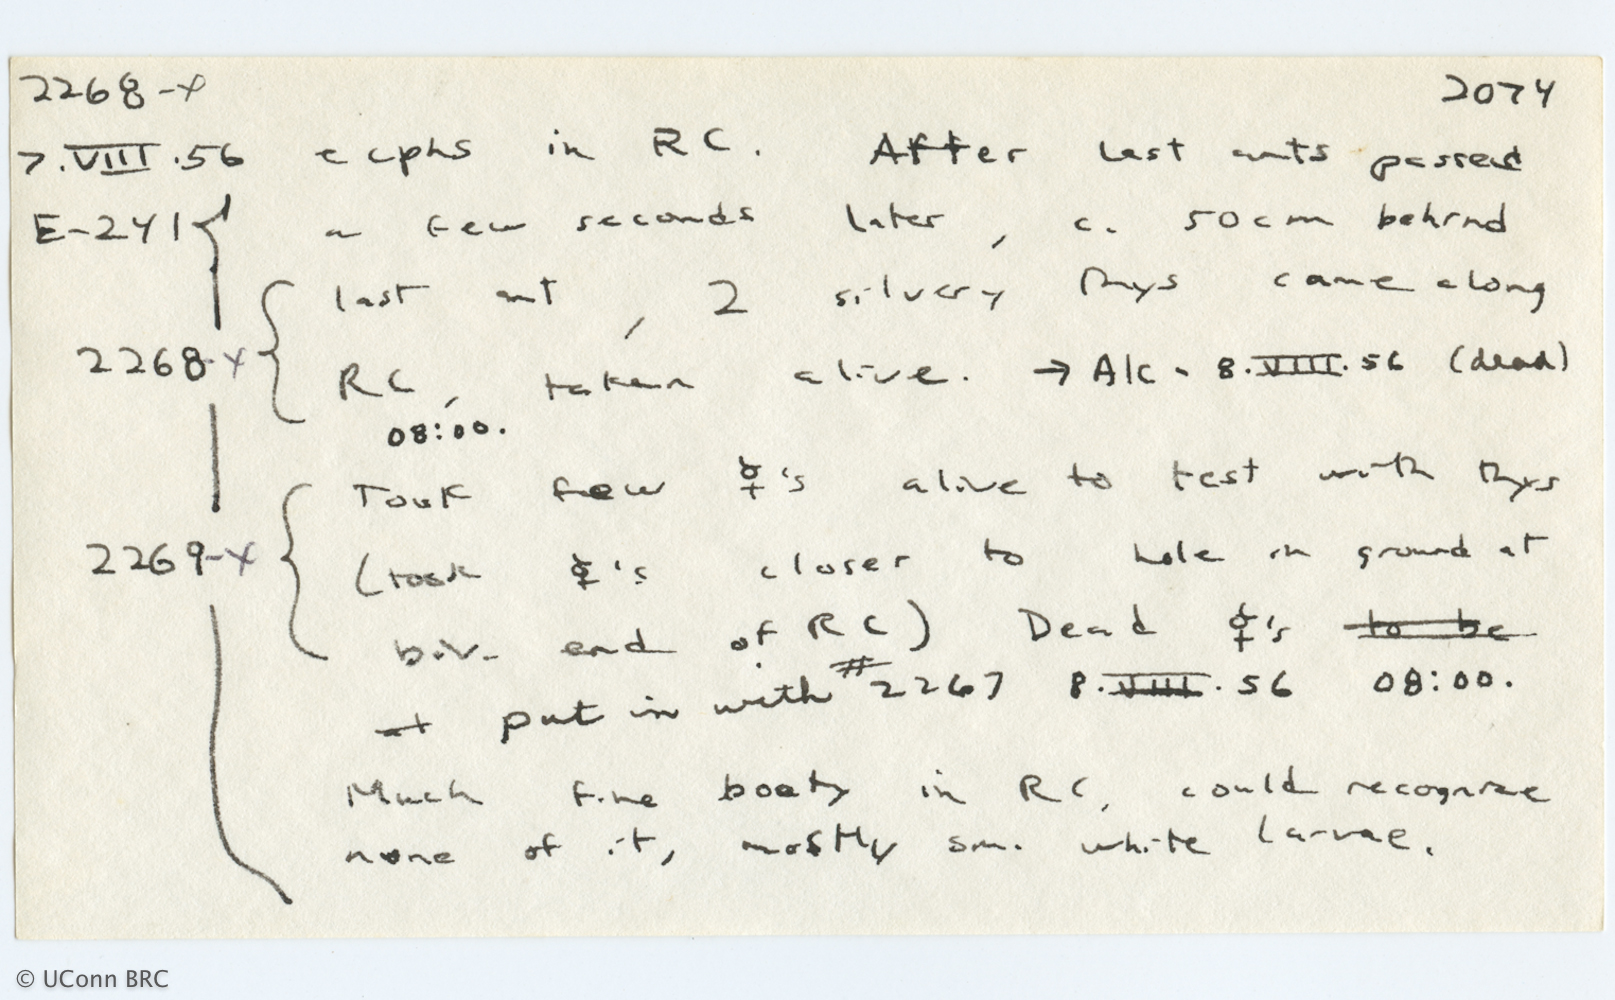 2268-x 2074
7.VIII.56 e cphs in RC. After last ants passed
E-241 a few seconds later, c. 50cm behind
last ant, 2 silvery Thys came along
2268-x RC, taken alive. → Alc. 8.VIII.56 (dead)
08:00.
Took few ☿'s alive to test with Thys
2269-x (took ☿'s closer to hole in ground at
biv. end of RC) Dead ☿'s to be
put in with #2267 8.VIII.56 08:00.
Much fine booty in RC, could recognize
none of it, mostly sm. white larvae.
© UConn BRC